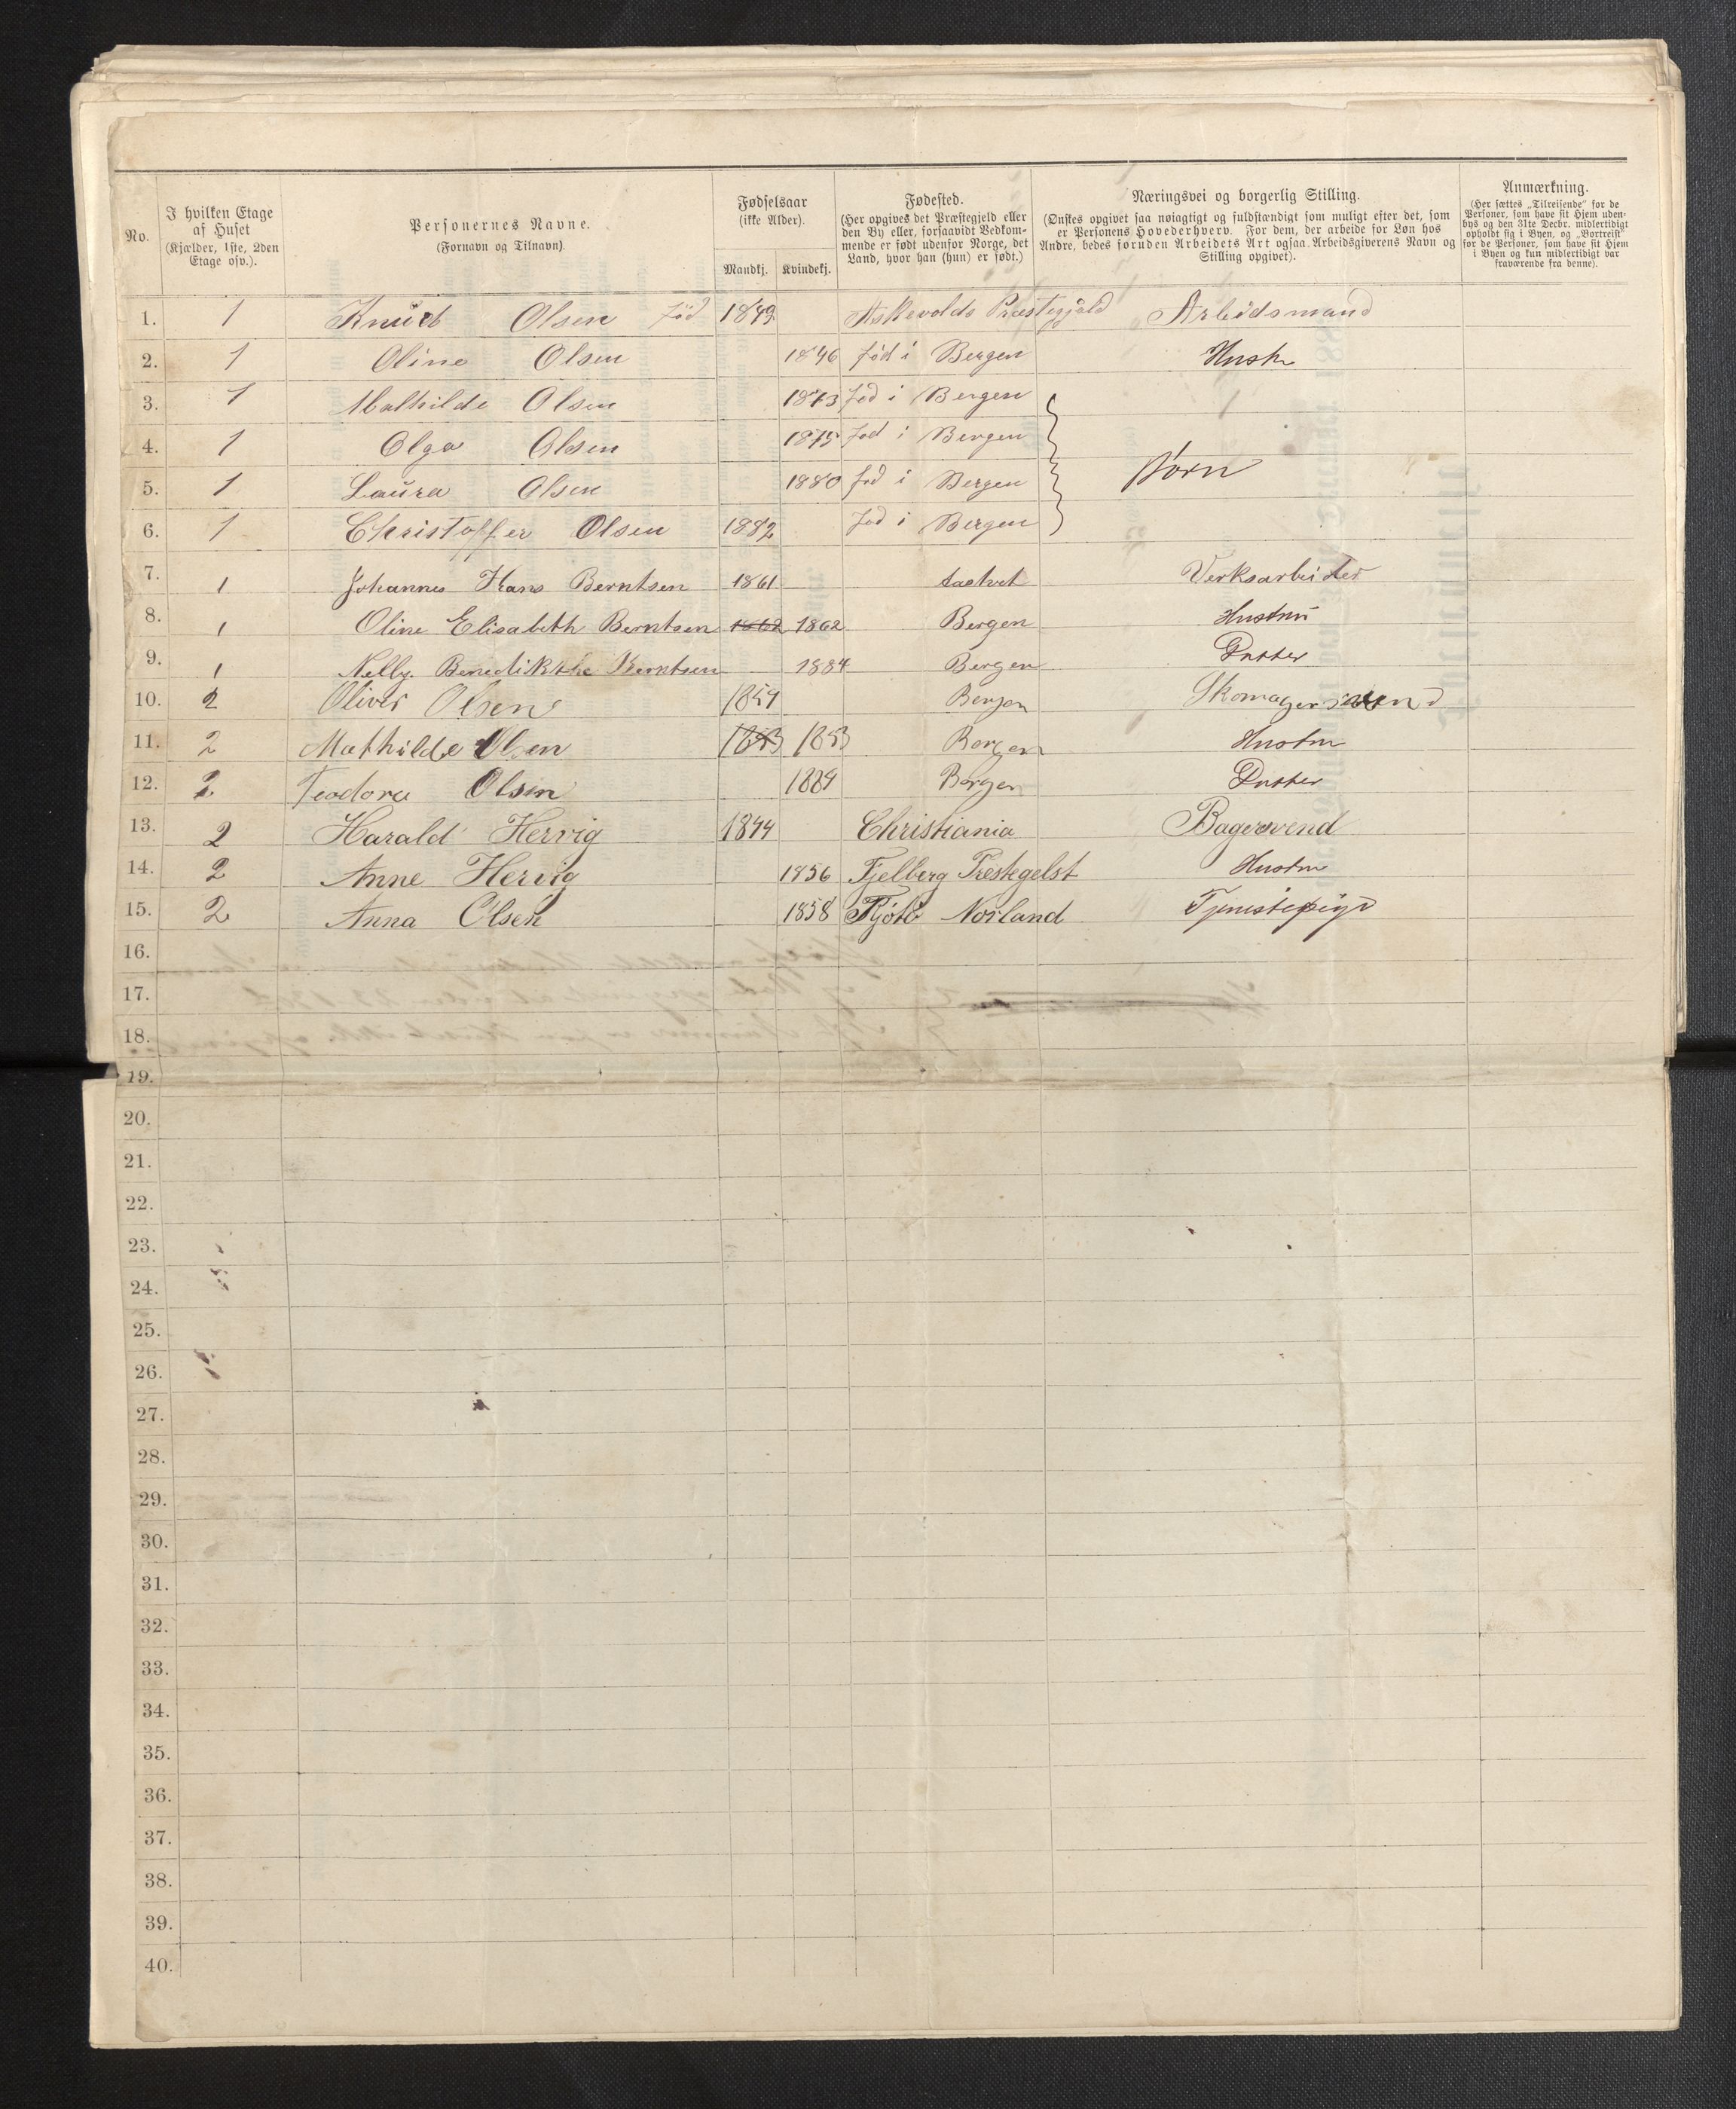 No.
I hvilken Etage af Huset (Kjælder, 1ste, 2den Etage osv.).
Personernes Navne. (Fornavn og Tilnavn)
Fødselsaar (ikke Alder).
Mandkj. Kvindekj.
Fødested. (Her opgives det Præstegjeld eller den By eller, forsaavidt Vedkommende er født udenfor Norge, det Land, hvor han (hun) er født.)
Næringsvei og borgerlig Stilling. (Ønskes opgivet saa nøiagtigt og fuldstændigt som muligt efter det, som er Personens Hovederhverv. For dem, der arbeide for Løn hos Andre, bedes foruden Arbeidets Art ogsaa Arbeidsgiverens Navn og Stilling opgivet).
Anmærkning. (Her sættes „Tilreisende" for de Personer, som have sit Hjem udenbys og den 31te Decbr. midlertidigt opholdt sig i Byen, og „Bortreist" for de Personer, som have sit Hjem i Byen og kun midlertidigt var fraværende fra denne).
1. 1 Knud Olsen fød 1849 Askevolds Præstegjäld Arbeidsmand
2. 1 Oline Olsen 1846 fød i Bergen Hustr
3. 1 Mathilde Olsen 1873 fød i Bergen
4. 1 Olga Olsen 1875 fød i Bergen
Børn
5. 1 Laura Olsen 1880 fød i Bergen
6. 1 Christoffer Olsen 1882 fød i Bergen
7. 1 Johannes Hans Berntsen 1861 Verksarbeider
8. 1 Oline Elisabeth Berntsen 1862 1862 Bergen Hustru
9. 1 Nelly Benedikthe Berntsen 1884 Bergen Datter
10. 2 Oliver Olsen 1854 Bergen Skomagersvend
11. 2 Mathilde Olsen 1853 1853 Bergen Hustru
12. 2 Teodora Olsen 1884 Bergen Datter
13. 2 Harald Hervig 1844 Christiania Bagersvend
14. 2 Anne Hervig 1856 Fjelberg Prestegelst Hustru
15. 2 Anna Olsen 1858 Tjøtø Norland Tjenistepige
16.
17.
18.
19.
20.
21.
22.
23.
24.
25.
26.
27.
28.
29.
30.
31.
32.
33.
34.
35.
36.
37.
38.
39.
40.